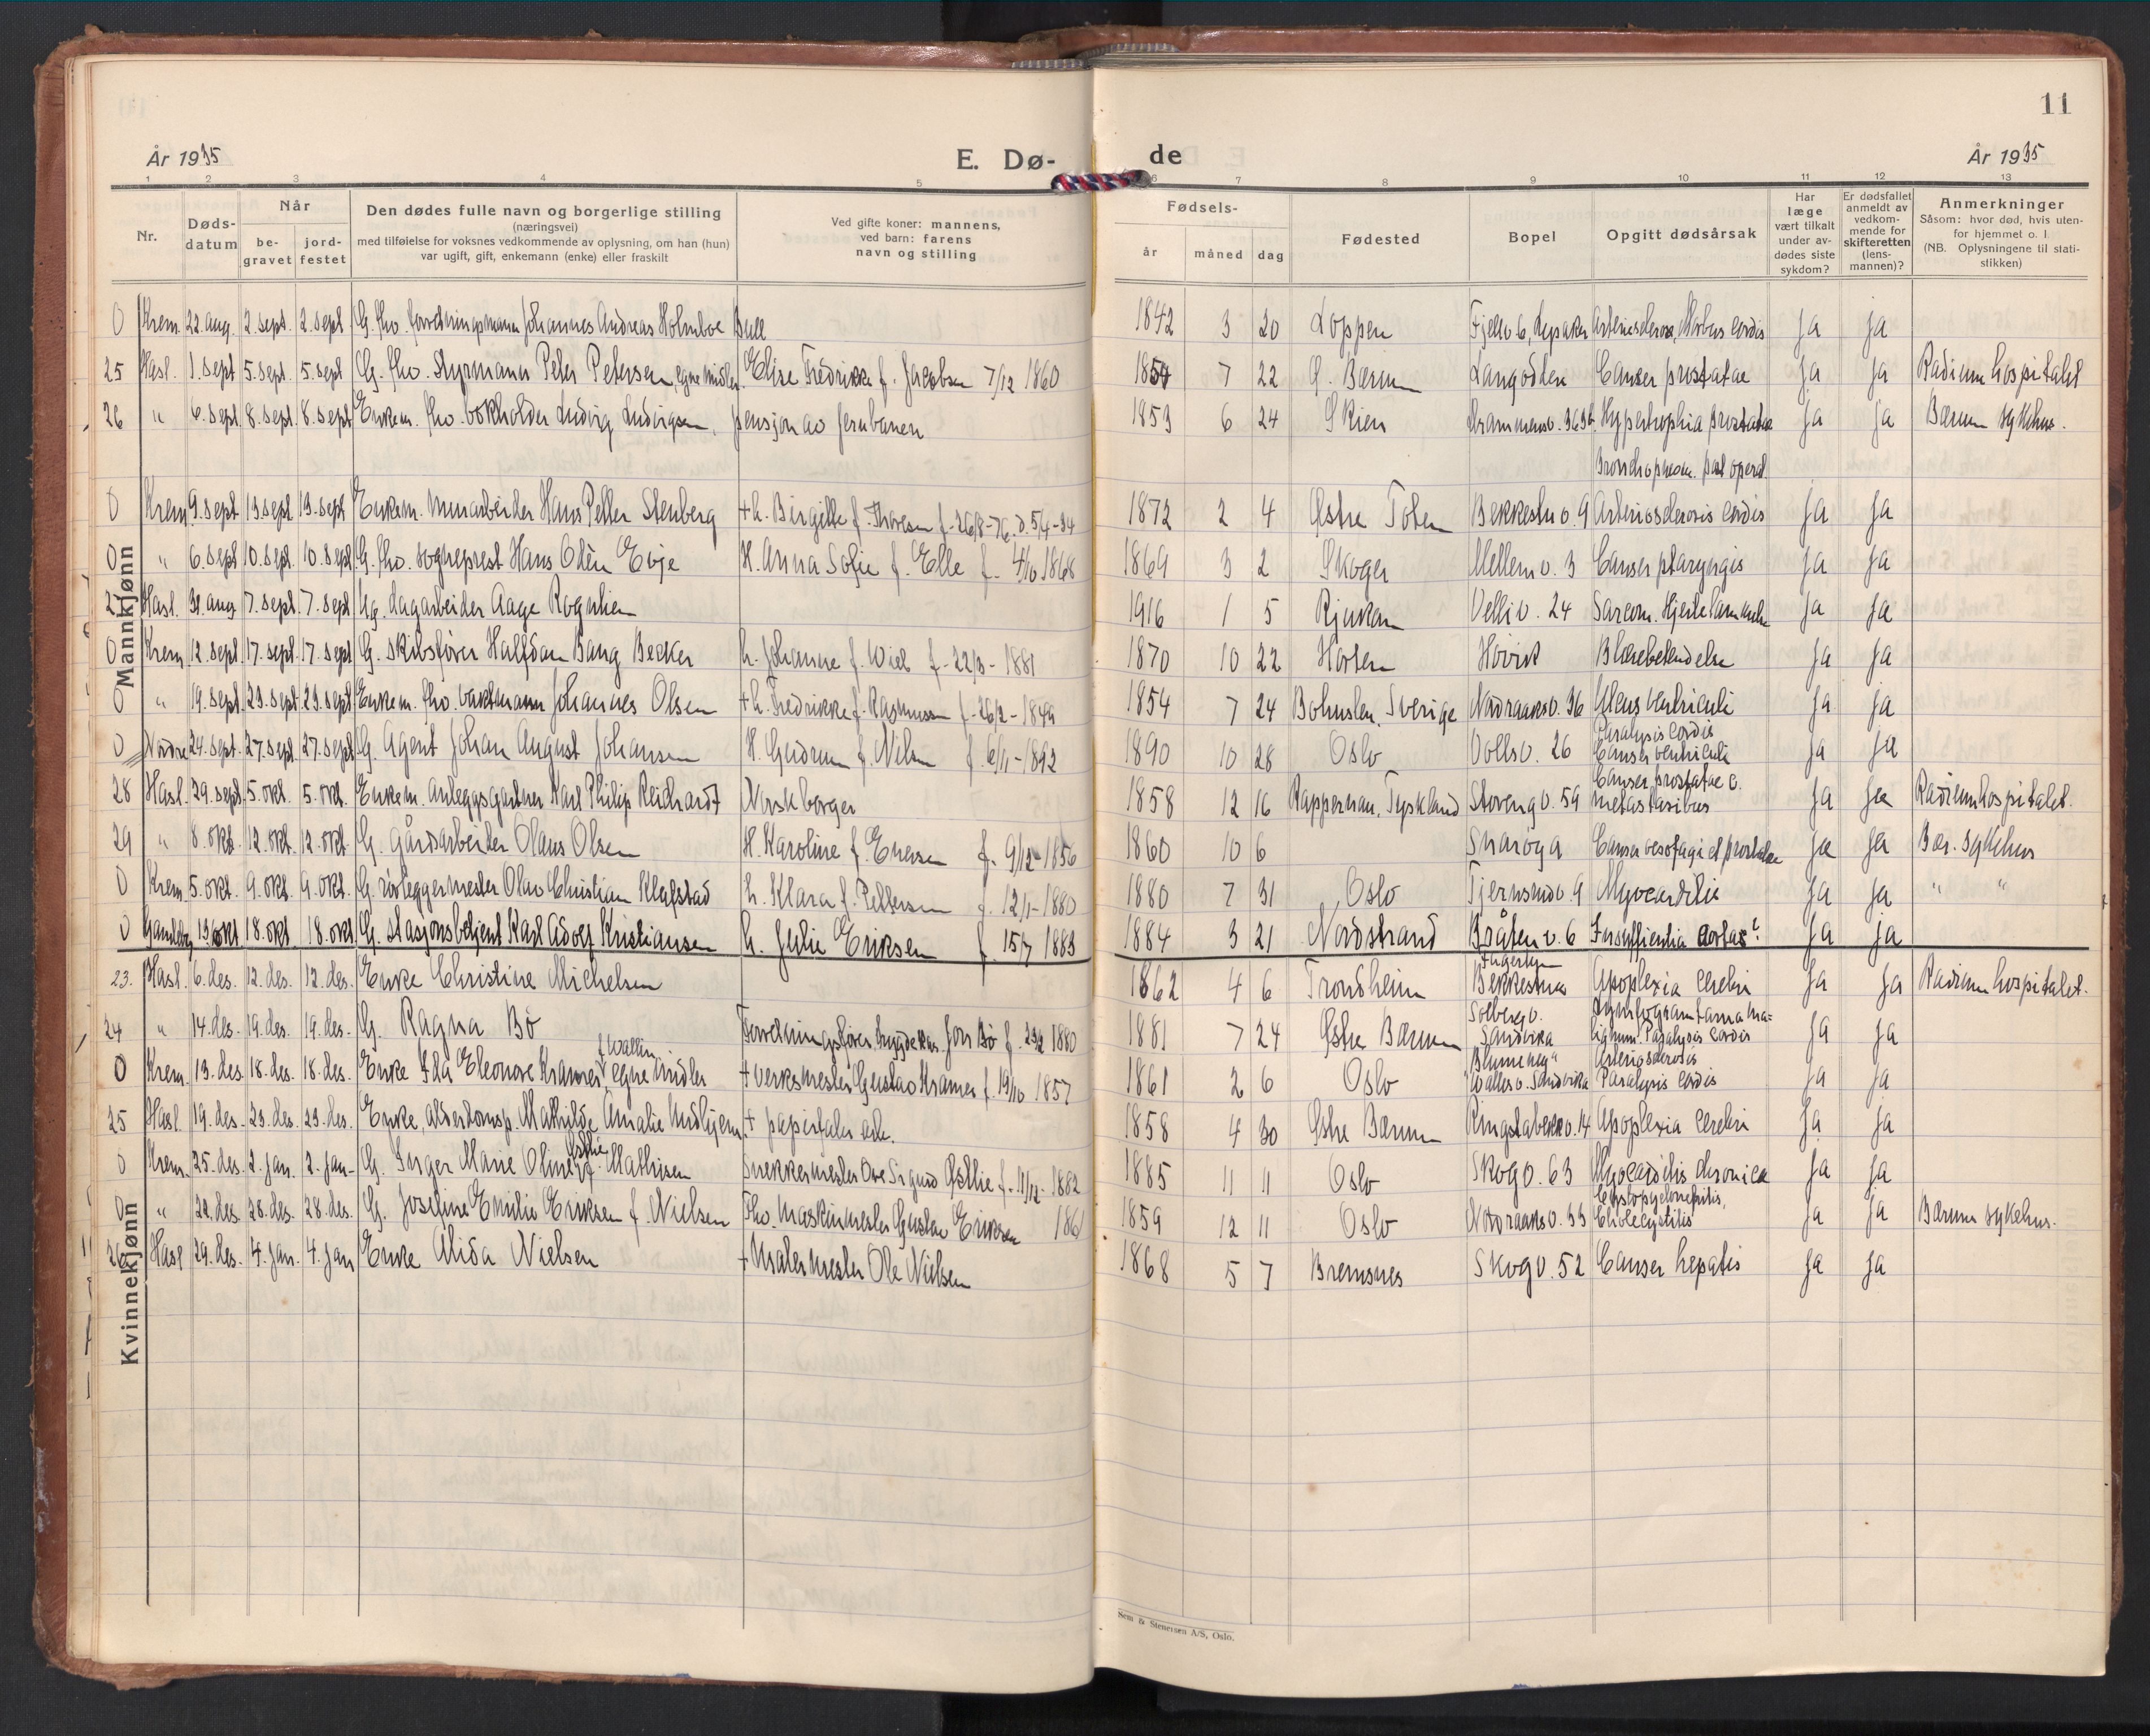 11
År 1935
E. Dø-
de
År 1935
1 2 3 4 5 6 7 8 9 10 11 12 13
Nr.
Døds-
datum
Når
be-
gravet
jord-
festet
Den dødes fulle navn og borgerlige stilling
(næringsvei)
med tilføielse for voksnes vedkommende av oplysning, om han (hun)
var ugift, gift, enkemann (enke) eller fraskilt
Ved gifte koner: mannens,
ved barn: farens
navn og stilling
Fødsels-
år måned dag
Fødested
Bopel
Opgitt dødsårsak
Har
læge
vært tilkalt
under av-
dødes siste
sykdom?
Er dødsfallet
anmeldt av
vedkom-
mende for
skifteretten
(lens-
mannen)?
Anmerkninger
Såsom: hvor død, hvis uten-
for hjemmet o. l.
(NB. Oplysningene til stati-
stikken)
Mannkjønn
0 Krem. 22. aug. 2. sept. 2. sept G. fhv. forretningsmann Johannes Andreas Holmboe Bull 1842 3 20 Loppen Fjellv. 6, Lysaker Arteriosclerose, Morbus cordis ja ja
25 Hasl. 1. sept 5. sept. 5. sept G. fhv. Styrmann Peter Petersen, egne midler. Elise Fredrikke f. Jacobsen 7/12 1860 1854 7 22 Ø. Bærum Langodden Cancer prostatae ja ja Radiumhospitalet
26 " 6. sept. 8. sept. 8. sept Enkem. fhv. bokholder Ludvig Ludvigsen, pensjon av jernbanen 1853 6 24 Skien Drammensv. 363b. Hypertrophia prostatae ja ja Bærum sykehus.
Bronchopneum. post operat.
0 Krem 9. sept 13. sept. 13. sept Enkem. Murarbeider Hans Petter Stenberg + h. Birgitte f. Thoresen f. 26/8-76. d. 5/4-34 1872 2 4 Østre Toten Bekkestuv. 9 Arteriosclerosis cordis ja ja
0 " 6. sept 10. sept. 10. sept G. fhv. sogneprest Hans Odin Evje H. Anna Sofie f. Elle f. 4/10 1868 1869 3 2 Skoger Mellemv. 3 Cancer pharyngis ja ja
27 Hasl. 31. aug 7. sept. 7. sept Ug. Lagarbeider Aage Rognlien 1916 1 5 Rjukan Velliv. 24 Sarcom. Hjertelammelse ja ja
0 Krem 12. sept 17. sept. 17. sept G. Skibsfører Halfdan Bang Becker h. Johanne f. Wiel f. 22/3 - 1881 1870 10 22 Horten Høvik Blærebetendelse ja ja
0 " 19. sept. 23. sept. 23. sept Enkem. fhv. vaktmann Johannes Olsen + h. Fredrikke f. Rasmussen f. 26/2 - 1849 1854 7 24 Bohuslen, Sverige Nordraaksv. 36 Ulcus ventriculi ja ja
Paralysis cordis
0 Nordre 24. sept. 27. sept. 27. sept G. Agent Johan August Johansen H. Gudrun f. Nilsen f. 6/11 - 1892 1890 10 28 Oslo Vollsv. 26 Cancer ventriculi ja ja
Cancer prostatae c.
28 Hasl. 29. sept. 5. okt. 5. okt. Enkem. Anleggsgartner Karl Philip Reichardt Norsk borger 1858 12 16 Rappenau, Tyskland Storengv. 59 metastasibus ja ja Radiumhospitalet.
29 " 8. okt. 12. okt. 12. okt. G. Gårdsarbeider Olaus Olsen H. Karoline f. Eversen f. 9/12 - 1856 1860 10 6 Snarøya Cancer oesofagi et prostatae ja ja Bær. sykehus
0 Krem 5. okt. 9. okt. 9. okt. G. rørleggermester Olav Christian Klafstad h. Klara f. Pettersen f. 12/1 - 1880 1880 7 31 Oslo Tjernsmv. 9 Myocarditis ja ja " "
0 Gamleby 13/okt 18. okt. 18. okt G. stasjonsbetjent Karl Adolf Kristiansen h. Julie Eriksen f. 15/7 1883 1884 3 21 Nordstrand Bråtenv. 6 Insuffientia aortas? ja ja
Kvinnekjønn
23. Hasl. 6. des. 12. des. 12. des. Enke Christine Michelsen 1862 4 6 Trondheim Bekkestua Apoplexia cerebri ja ja Radiumhospitalet.
Solbergv. Lymfogranuloma ma-
24 " 14. des. 19. des. 19. des. G. Ragna Bø Forretningsfører, trygdekas. Jon Bø f. 23/2 1880 1881 7 24 Østre Bærum Sandvika lignum. Paralysis cordis ja ja
f. Wallin "Blommeng" Arteriosclerosis
0 Krem. 13. des. 18. des. 18. des. Enke Ida Eleonore Kramer, egne midler + verksmester Gustav Kramer f. 19/10 1857 1861 2 6 Oslo Wallesv. Sandvika Paralysis cordis ja ja
25 Hasl. 19. des. 23. des. 23. des. Enke, alderstomsp. Mathilde Amalie Midtjern. + papirfabr. arb. 1858 4 30 Østre Bærum Ringstabekkv. 14 Apoplexia cerebri ja ja
0 Krem. 25. des. 2. jan. 2. jan- G. Inger Marie Oline Østlie f. Mathisen Snekkermester Ove Sigurd Østlie f. 11/12 - 1882 1885 11 11 Oslo Skogv. 63 Myocarditis chronica ja ja
Cystopyelonefritis,
0 " 22. des. 28. des. 28. des. G. Josefine Emilie Eriksen f. Nielsen Fhv. Maskinmester Gustav Eriksen 1861 1859 12 11 Oslo Nordraaksv. 33 Cholecystitis ja ja Bærum sykehus.
26 Hasl 29. des. 4. jan. 4. jan Enke Alida Nielsen + Malermester Ole Nielsen 1868 5 7 Bremsnes Skogv. 52 Cancer hepatis ja ja
Sem & Stenersen A/S, Oslo.